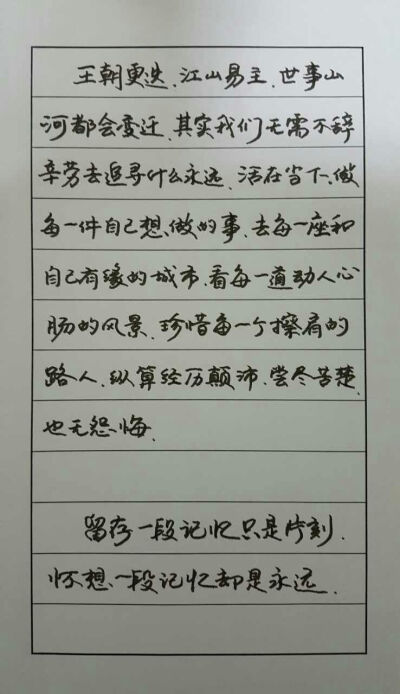 王朝更迭、江山易主、世事山
河都会变迁、其实我们无需不辞
辛劳去追寻什么永远、活在当下、做
每一件自己想做的事、去每一座和
自己有缘的城市、看每一道动人心
肠的风景、珍惜每一个擦肩的
路人、纵算经历颠沛、尝尽苦楚、
也无怨悔、
留存一段记忆只是片刻、
怀想一段记忆却是永远、